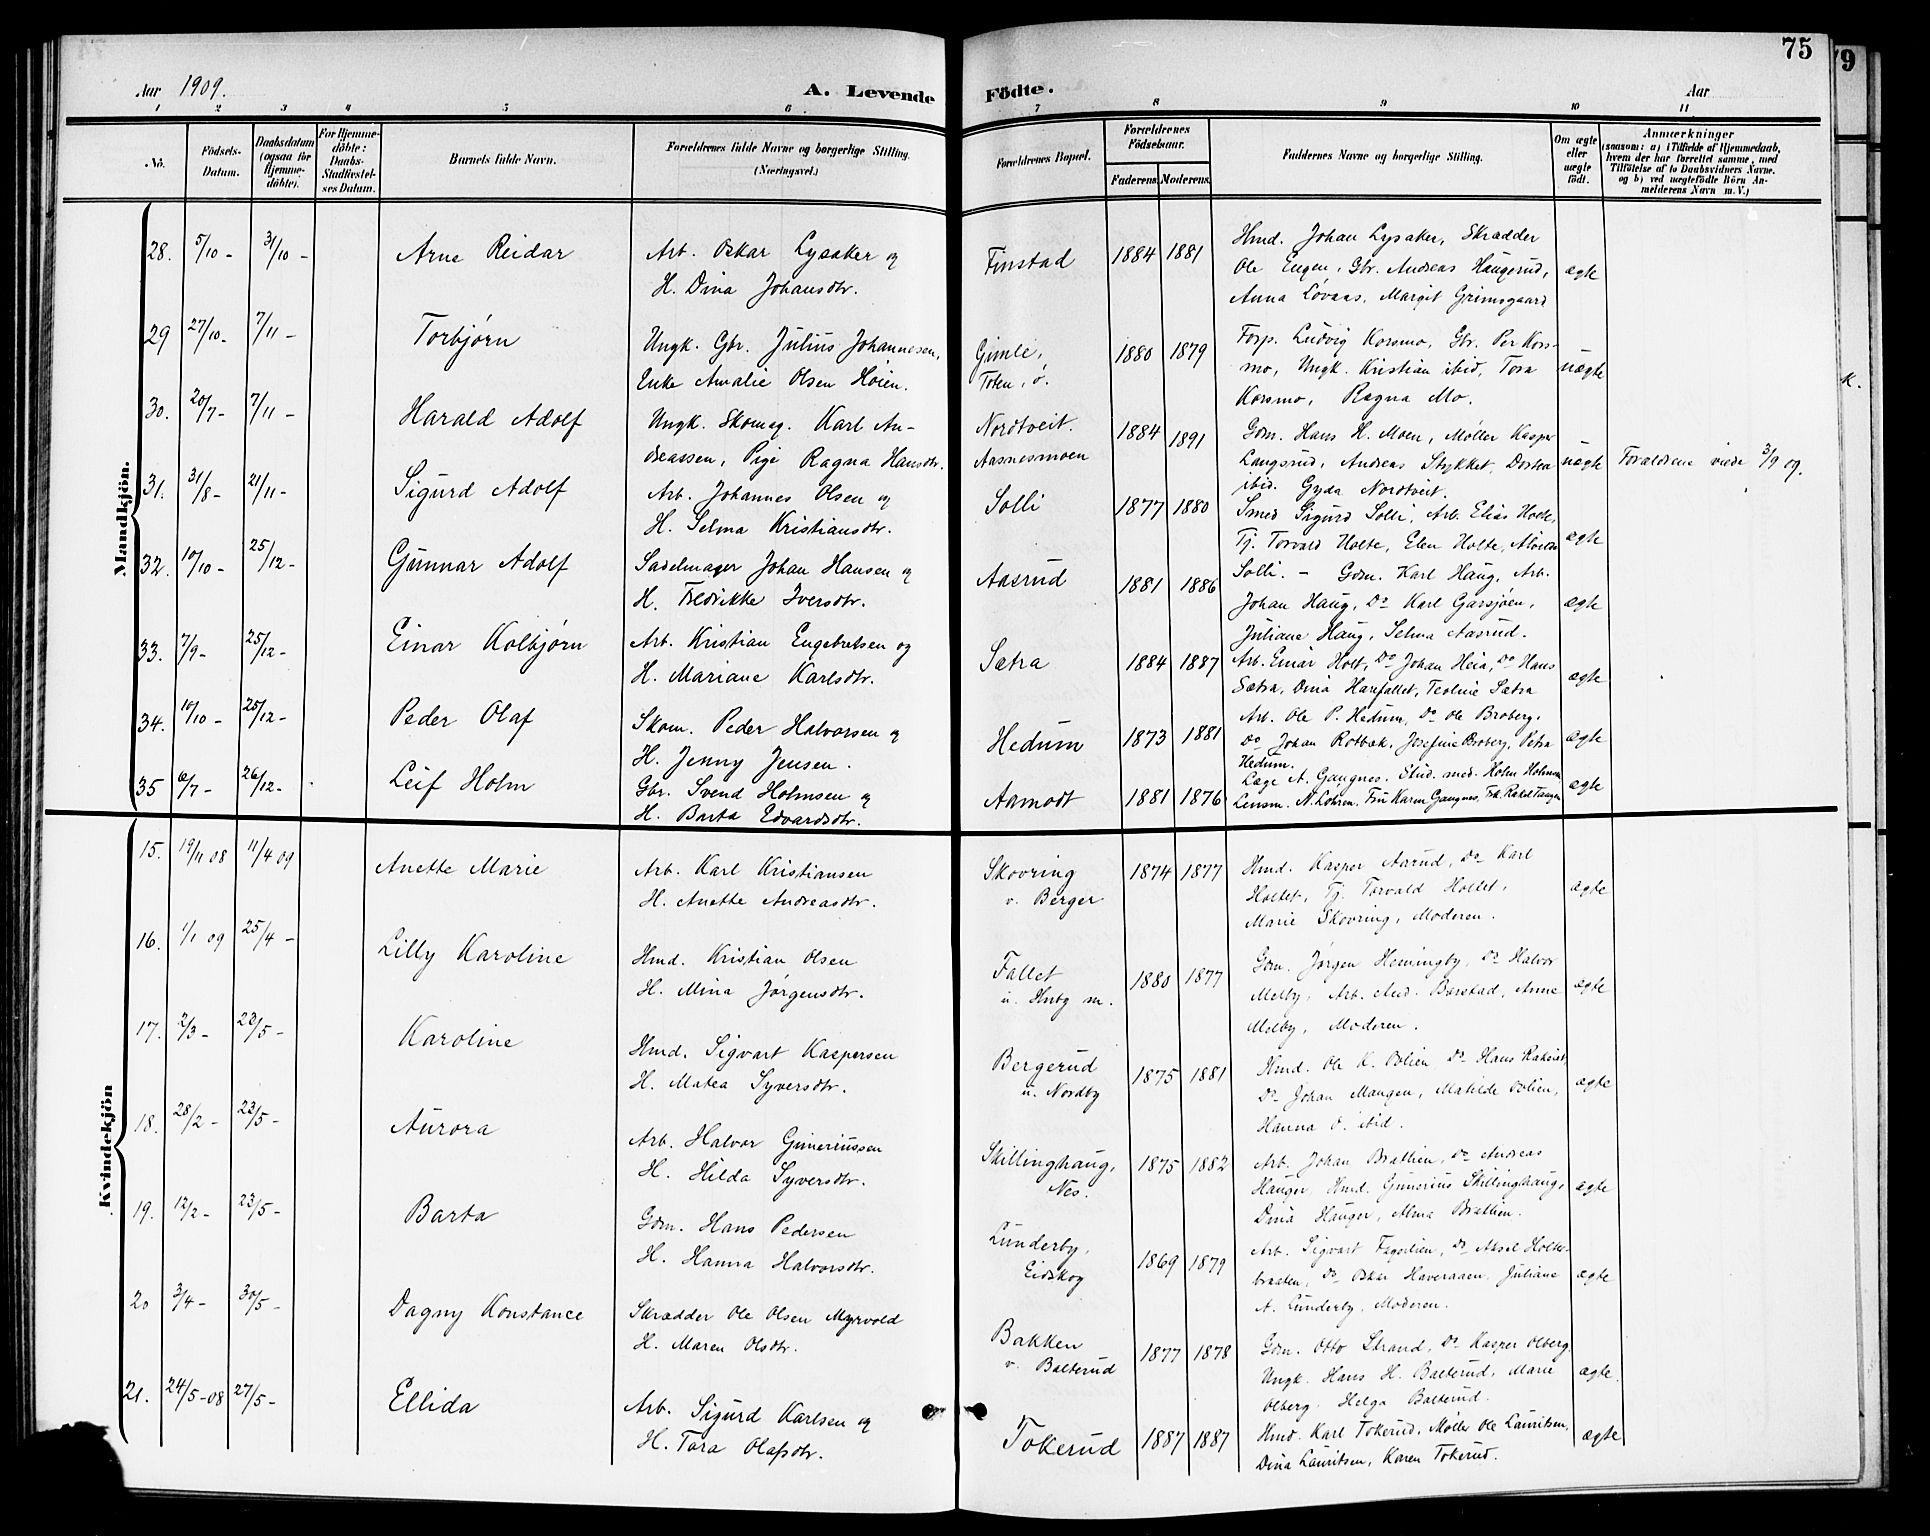 75
79
Aar 1909.
A. Levende Födte.
Aar
1 2 3 4 5 6 7 8 9 10 11
No.
Födsels-Datum.
Daabsdatum (ogsaa for Hjemme-döbte).
For Hjemme-döbte: Daabs-Stadfæstel-ses Datum.
Barnets fulde Navn.
Forældrenes fulde Navne og borgerlige Stilling.
(Næringsvei.)
Forældrenes Bopæl.
Forældrenes Födselsaar.
Faderens. Moderens.
Faddernes Navne og borgerlige Stilling.
Om ægte eller uægte födt.
Anmærkninger
(saasom: a) i Tilfælde af Hjemmedaab,
hvem der har forrettet samme, med
Tilföielse af to Daabsvidners Navne.
og b) ved uægtefödte Börn An-
melderens Navn m. V.)
Mandkjön.
28. 5/10 - 31/10 - Arne Reidar
Arb. Oskar Lysaker og
H. Dina Johansdtr.
Finstad 1884 1881
Hmd. Johan Lysaker, Skrædder
Ole Engen, Gbr. Andreas Haugerud,
Anna Løvaas, Margit Grimsgaard
ægte
29 27/10 - 7/11 - Torbjørn
Ungk. Gbr. Julius Johannesen,
Enke Amalie Olsen Høien.
Gimle,
Toten, ø.
1880 1879
Forp. Ludvig Korsmo, Gbr. Per Kors-
mo, Ungk. Kristian ibid, Tora
Korsmo, Ragna Mo.
uægte
30. 20/7 - 7/11 - Harald Adolf
Ungk. Skomag. Karl An-
dreassen, Pige Ragna Hansdtr.
Nordtveit.
Aasnesmoen
1884 1891
Gdm. Hans H. Moen, Møller Kasper
Langsrud, Andreas Stykket, Dortea
ibid. Gyda Nordtveit.
uægte
Forældrene viede 3/9 09.
31. 31/8 - 21/11 - Sigurd Adolf
Arb. Johannes Olsen og
H. Selma Kristiansdtr.
Solli 1877 1880
Smed Sigurd Solli, Arb. Elias Holte,
Tj. Torvald Holte, Elen Holte,
Solli. -
ægte
32. 10/10 - 25/12 - Gunnar Adolf
Sadelmager Johan Hansen og
H. Fredrikke Iversdtr.
Aasrud 1881 1886
Gdm. Karl Haug, Arb.
Johan Haug, Do Karl Garsjøen,
Juliane Haug, Selma Aasrud.
ægte
33. 7/9 - 25/12 - Einar Kolbjørn
Arb. Kristian Engebretsen og
H. Mariane Karlsdtr.
Sætra 1884 1887
Arb. Einar Holt, Do Johan Heia, Do Hans
Sætra, Dina Harefallet, Teoline Sætra
ægte
34. 10/10 - 25/12 - Peder Olaf
Skom. Peder Halvorsen og
H. Jenny Jensen.
Hedum 1873 1881
Arb. Ole P. Hedum, Do Ole Broberg,
Do Johan Rotbæk, Josefine Broberg, Petra
Hedum.
ægte
35 6/7 - 26/12 - Leif Holm
Gbr. Svend Holmsen og
H. Barta Edvardsdtr.
Aamodt 1881 1876
Læge A. Gangnes. Stud. med. Holm Holmsen
Lensm. N. Lohren. Fru Karen Gangnes, Frk. Rakel Tangen
ægte
Kvindekjön
15. 19/11 08 11/4 09 Anette Marie
Arb. Karl Kristiansen
H. Anette Andreasdtr.
Skovring
v. Berger
1874 1877
Hmd. Kasper Aarud, Do Karl
Holtet, Tj. Torvald Holtet,
Marie Skovring, Moderen.
ægte
16. 1/1 09 25/4 - Lilly Karoline
Hmd. Kristian Olsen
H. Mina Jørgensdtr.
Fallet
u. Hnby m.
1880 1877
Gdm. Jørgen Hemingby, Do Halvor
Melby, Arb. And. Barstad, Anne
Melby, Moderen.
ægte
17. 2/3 - 23/5 - Karoline
Hmd. Sigvart Kaspersen
H. Matea Syversdtr.
Bergerud
u. Nordby
1875 1881
Hmd. Ole K. Oslien Do Hans
Do Johan Mangen, Matilde Oslien,
Hanna O. ibid.
ægte
18. 28/2 - 23/5 - Aurora
Arb. Halvor Guneriussen
H. Hilda Syversdtr.
Skillinghaug,
Nes.
1875 1882
Arb. Johan Bræthen, Do Andreas
Hauger, Hmd. Gunerius Skillinghaug,
Dina Hauger, Alma Bræthen.
ægte
19. 12/2 - 23/5 - Barta
Gdm. Hans Pedersen
H. Hanna Halvorsdtr.
Lunderby,
Eidskog
1869 1879
Arb. Sigvart Fagerlien, Do Aksel Holter-
braaten, Do Oskar Haveraaen, Juliane
A. Lunderby, Moderen.
ægte
20 3/4 - 30/5 - Dagny Konstance
Skrædder Ole Olsen Myrvold
H. Maren Olsdtr.
Bakken
v. Balterud
1877 1878
Gdm. Otto Strand, Do Kasper Olberg,
Ungk. Hans H. Balterud, Marie
Olberg, Helga Balterud.
ægte.
21. 24/5 - 08 27/5 - Ellida
Arb. Sigurd Karlsen og
H. Tara Olafsdtr.
Tokerud 1887 1887
Hmd. Karl Tokerud, Møller Ole Lauritsen,
Dina Lauritsen, Karen Tokerud.
ægte